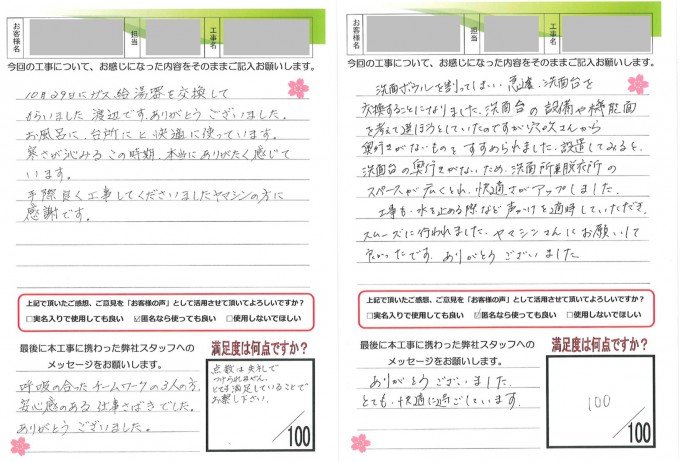 お客様名
担当
工事名
今回の工事について、お感じになった内容をそのままご記入お願いします。
10月29日にガス給湯器を交換して
もらいました渡辺です。ありがとうございました。
お風呂に、台所にと快適に使っています。
寒さが沁みるこの時期、本当にありがたく感じて
います。
手際良く工事してくださいましたヤマシンの方に
感謝です。
上記で頂いたご感想、ご意見を「お客様の声」として活用させて頂いてよろしいですか?
□実名入りで使用しても良い ☑匿名なら使っても良い □使用しないでほしい
最後に本工事に携わった弊社スタッフへの
メッセージをお願いします。
呼吸の合ったチームワークの3人の方、
安心感のある仕事さばきでした。
ありがとうございました。
満足度は何点ですか?
点数は失礼で
つけられません。
とても満足していることで
お察し下さい。
/100
お客様名
担当
工事名
今回の工事について、お感じになった内容をそのままご記入お願いします。
洗面ボウルを割ってしまい、急遽、洗面台を
交換することになりました。洗面台の設備や機能面
を考えて選ぼうとしていたのですが穴吹さんから
奥行きがないものをすすめられました。設置してみると、
洗面台の奥行きがないため、洗面所兼脱衣所の
スペースが広くとれ、快適さがアップしました。
工事も、水を止める際など声かけを適時していただき、
スムーズに行われました。ヤマシンさんにお願いして
良かったです。ありがとうございました
上記で頂いたご感想、ご意見を「お客様の声」として活用させて頂いてよろしいですか?
□実名入りで使用しても良い ☑匿名なら使っても良い □使用しないでほしい
最後に本工事に携わった弊社スタッフへの
メッセージをお願いします。
ありがとうございました。
とても快適に過ごしています。
満足度は何点ですか?
100
/100